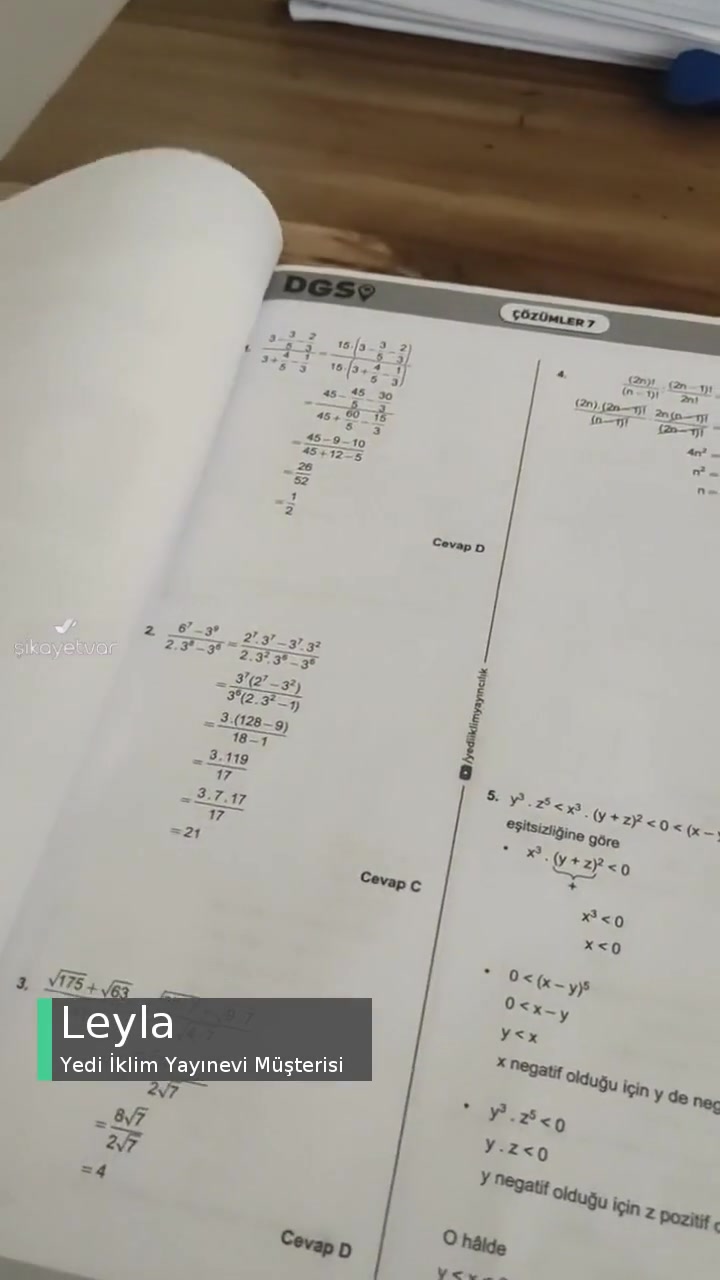 DGS
ÇÖZÜMLER 7
1. (3 - 3/5 - 2/3)/(3 + 4/5 - 1/3) = 15·(3 - 3/5 - 2/3)/15·(3 + 4/5 - 1/3)
= (45 - 45/5 - 30/3)/(45 + 60/5 - 15/3)
= (45 - 9 - 10)/(45 + 12 - 5)
= 26/52
= 1/2
Cevap D
2. (6⁷ - 3⁹)/(2.3⁸ - 3⁶) = (2⁷.3⁷ - 3⁷.3²)/(2.3².3⁶ - 3⁶)
= 3⁷(2⁷ - 3²)/3⁶(2.3² - 1)
= 3.(128 - 9)/(18 - 1)
= 3.119/17
= 3.7.17/17
= 21
Cevap C
3. √175 + √63
2√7
= 8√7/2√7
= 4
Cevap D
/yediiklimyayincilik
4. (2n)!/(n - 1)! · (2n - 1)!/2n!
(2n).(2n - 1)!/(n - 1)! 2n(n - 1)!/(2n - 1)! =
4n² =
n² =
n =
5. y³ . z⁵ < x³ . (y + z)² < 0 < (x -
eşitsizliğine göre
• x³ . (y + z)² < 0
+
x³ < 0
x < 0
• 0 < (x - y)⁵
0 < x - y
y < x
x negatif olduğu için y de neg
• y³ . z⁵ < 0
y . z < 0
y negatif olduğu için z pozitif
O hâlde
y < x <
şikayetvar
Leyla
Yedi İklim Yayınevi Müşterisi